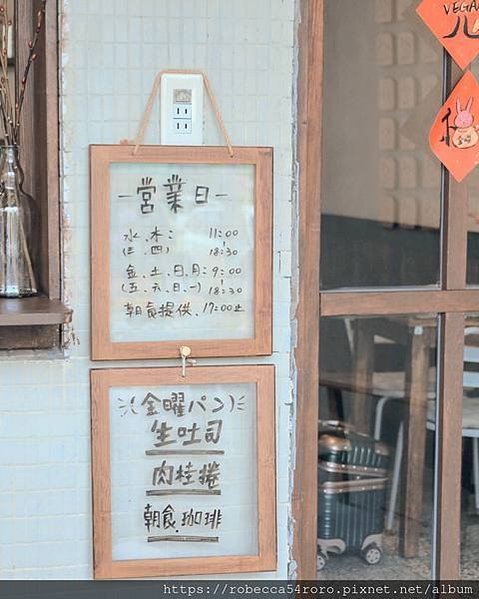 －営業日－
水、木：11:00
(三、四) 18:30
金、土、日、月：9:00
(五、六、日、一) 18:30
朝食提供、17:00止
金曜パン
生吐司
肉桂捲
朝食.珈琲
VEGAN
https://robecca54roro.pixnet.net/album